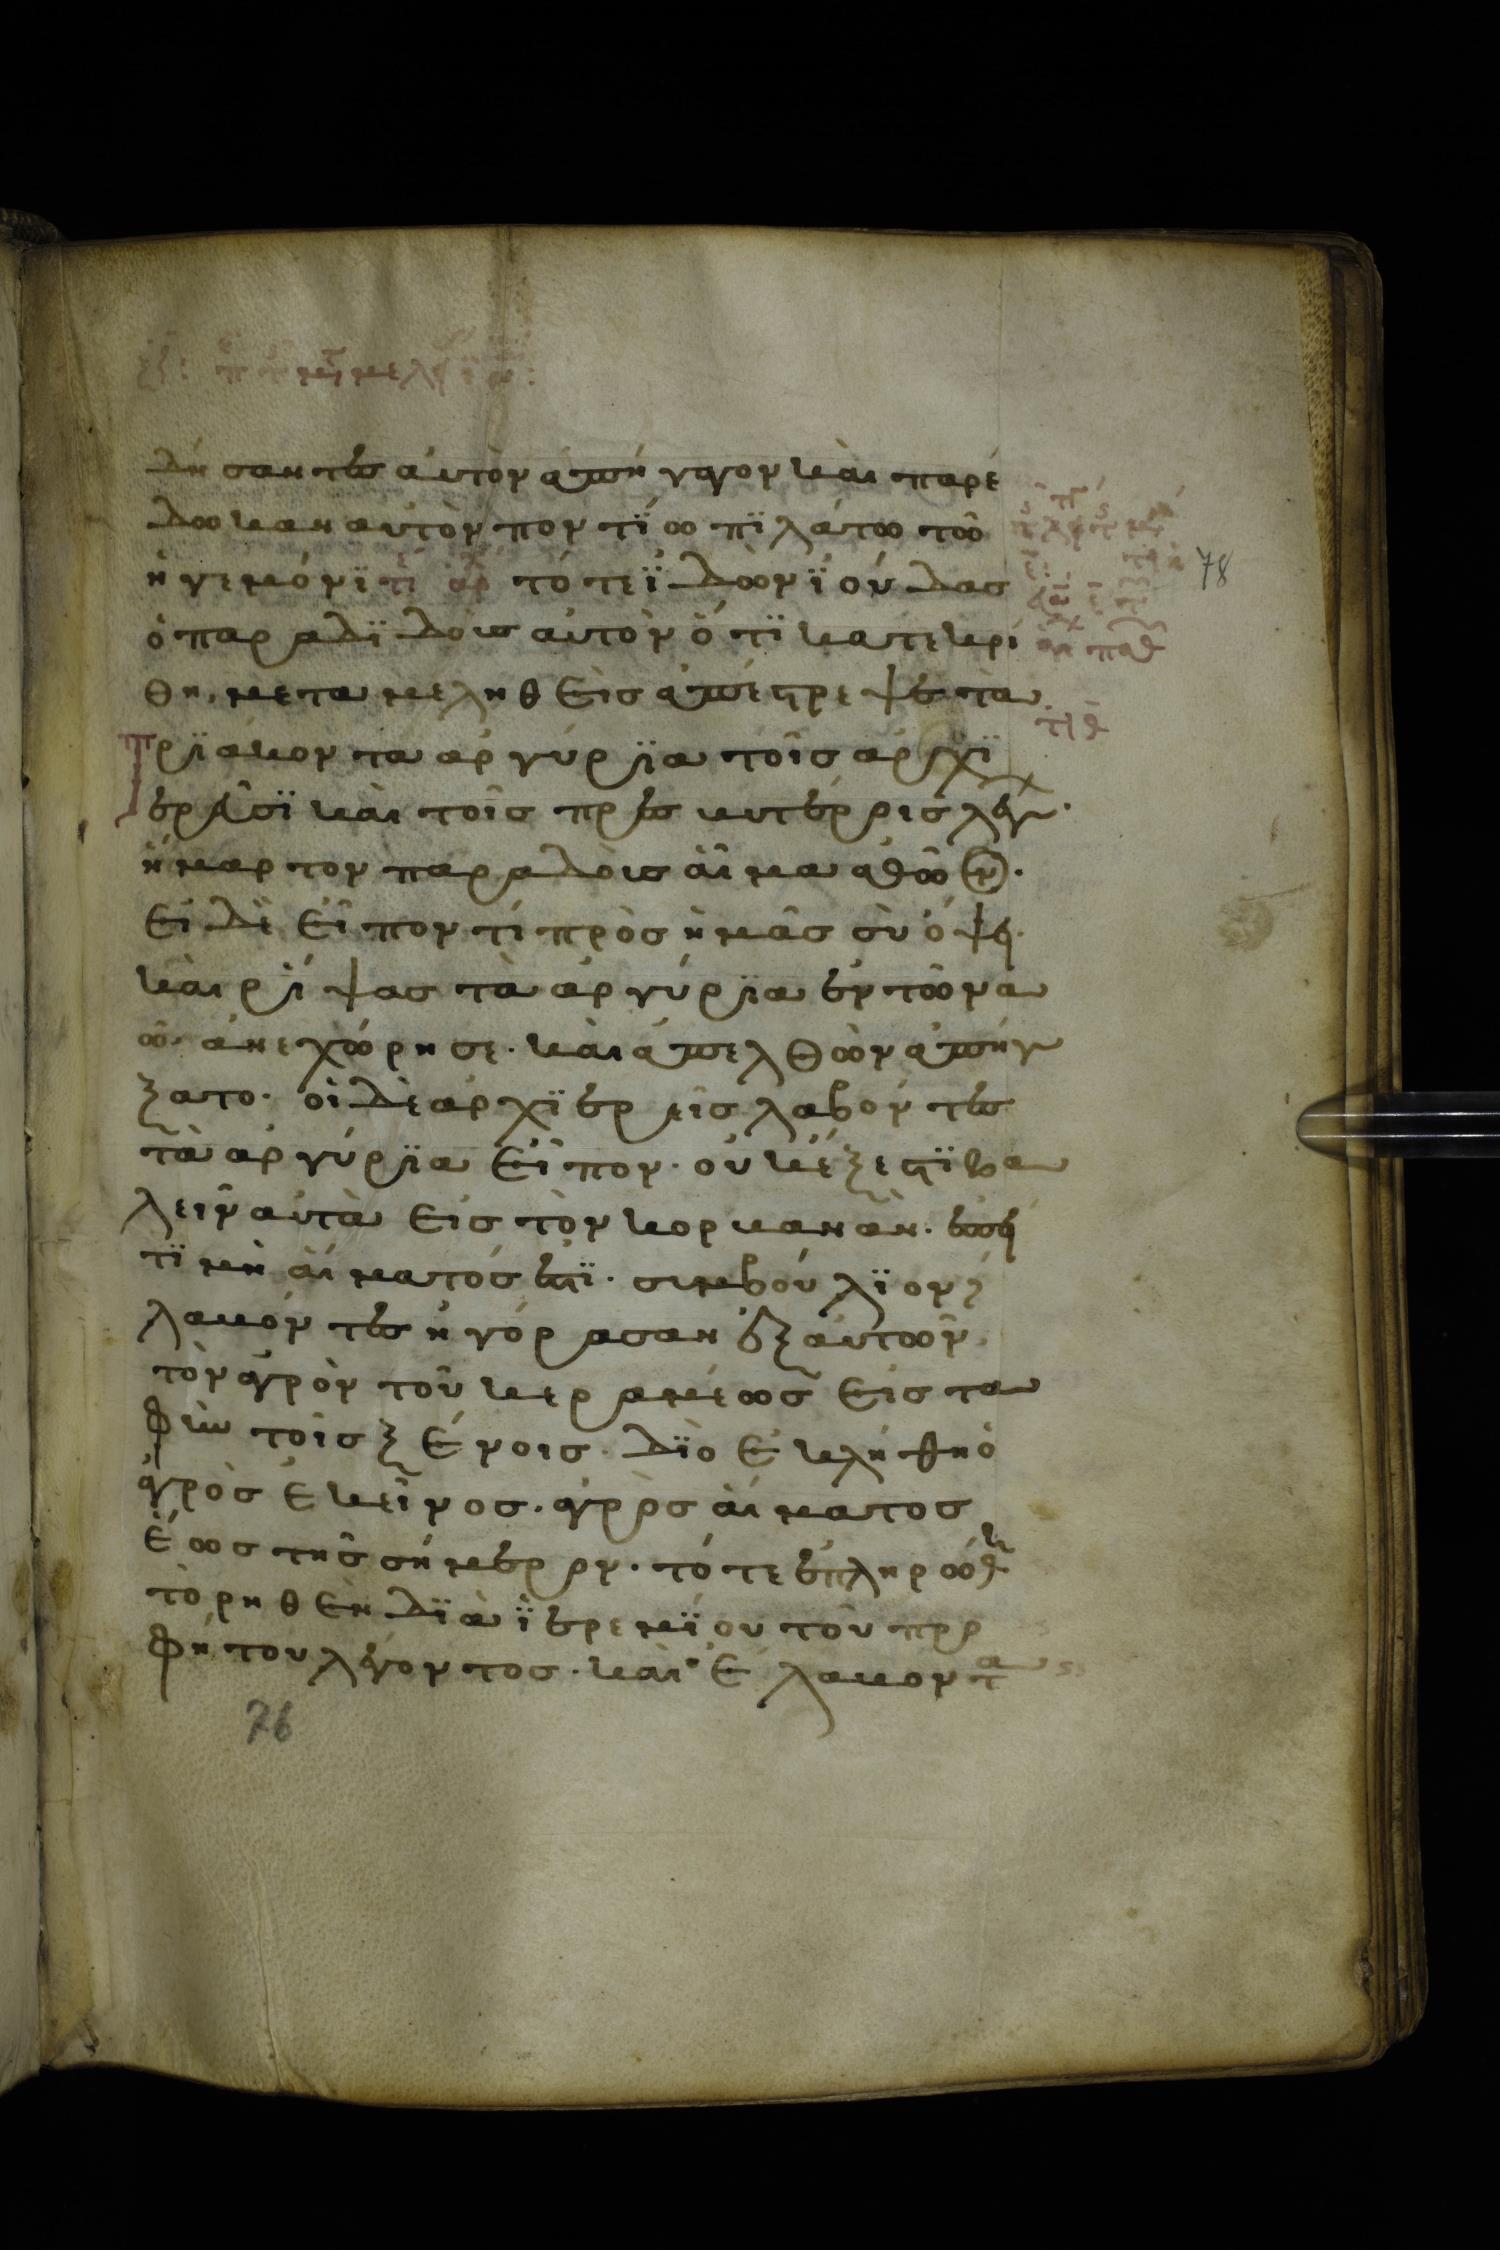 δήσαντες αὐτὸν ἀπήγαγον καὶ παρέ
δωκαν αὐτὸν ποντΐω πϊλάτω τῶ
ἡγεμόνϊ τότε ϊδὼν ϊούδας
ὁ παραδϊδοὺς αὐτὸν ὅτϊ κατεκρί
θη, μεταμεληθεὶς ἀπέστρεψε τὰ
τριάκοντα ἀργύρϊα τοῖς ἀρχϊ
ερεῦσϊ καὶ τοῖς πρεσβυτέροις λέγων·
ἥμαρτον παραδοὺς αἷμα ἀθῶον·
εἰ δὲ εἶπον τί πρὸς ἡμᾶς σὺ ὄψει·
καὶ ρίψας τὰ ἀργύρϊα ἐν τῶ να
ῶ· ἀνεχώρησε· καὶ ἀπελθὼν ἀπήγ
ξατο· οἱ δὲ ἀρχϊερεῖς λαβόντες
τὰ ἀργύρϊα εἶπον· οὐκ ἔξεστϊ βα
λεῖν αὐτὰ εἰς τὸν κορβανᾶν· ἐπεὶ
τϊμὴ αἵματός ἐστϊ· συμβούλϊον
λαβόντες ἠγόρασαν ἐξ αὐτῶν
τὸν ἀγρὸν τοῦ κεραμέως εἰς τα
φὴν τοῖς ξένοις· δϊο ἐκλήθη ὁ
ἀγρὸς ἐκεῖνος· ἀγρὸς αἵματος
ἕως τῆς σήμερον· τότε ἐπληρώθη
τὸ ρηθὲν δϊὰ ϊερεμΐου τοῦ προ
φήτου λέγοντος· καὶ ἔλαβον τα
78
76